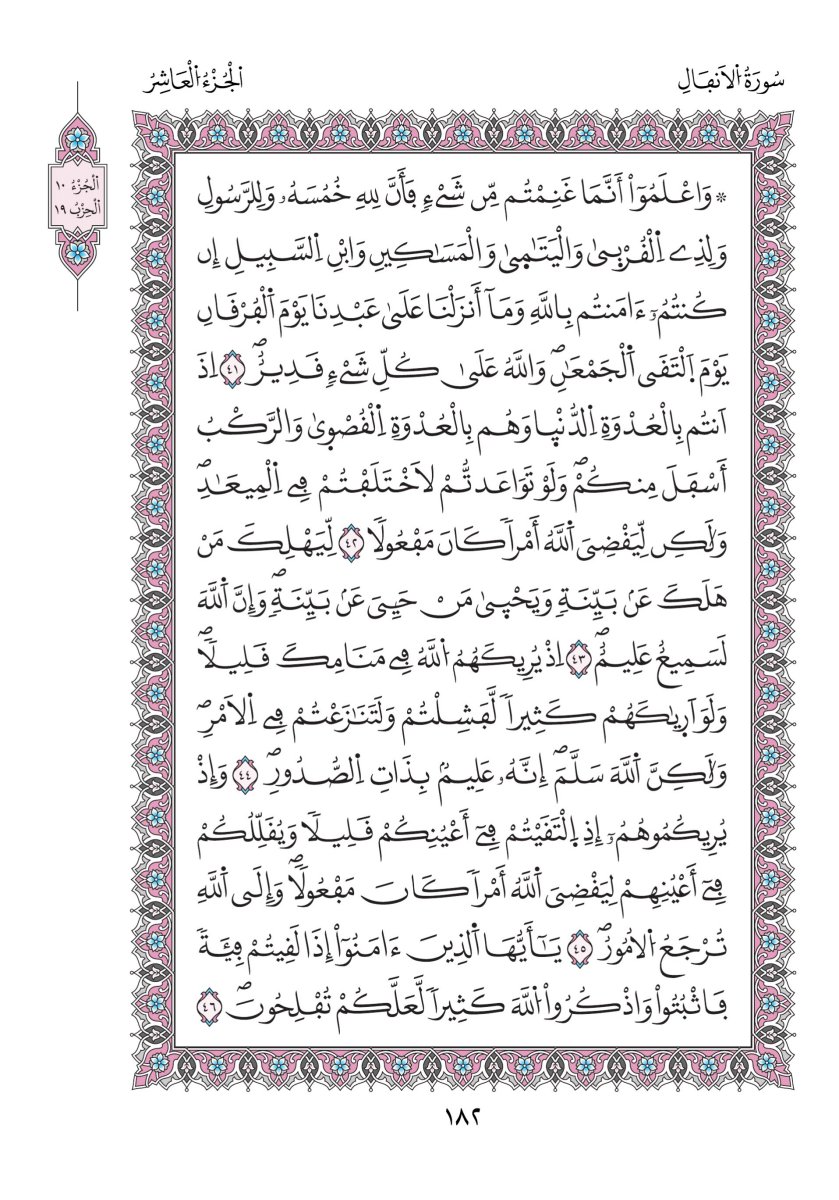 سُورَةُ الَانفَالِ
الْجُزْءُ الْعَاشِرُ
الْجُزْءُ ١٠
الْحِزْبُ ١٩
* وَاعْلَمُوٓاْ أَنَّمَا غَنِمْتُم مِّن شَےْءٍ فَأَنَّ لِلهِ خُمُسَهُۥ وَلِلرَّسُولِ
وَلِذِے اِلْقُرْب۪ىٰ وَالْيَتَٰم۪ىٰ وَالْمَسَٰكِينِ وَابْنِ اِلسَّبِيلِ إِن
كُنتُمُۥٓ ءَامَنتُم بِاللَّهِ وَمَآ أَنزَلْنَا عَلَىٰ عَبْدِنَا يَوْمَ اَلْفُرْقَانِ
يَوْمَ اَلْتَقَى اَلْجَمْعَٰنِۖ وَاللَّهُ عَلَىٰ كُلِّ شَےْءٍ قَدِيرٌۖ ٤١ اِذَ
اَنتُم بِالْعُدْوَةِ اِلدُّنْي۪ا وَهُم بِالْعُدْوَةِ اِلْقُصْو۪ىٰ وَالرَّكْبُ
أَسْفَلَ مِنكُمْۖ وَلَوْ تَوَاعَدتُّمْ لَاخْتَلَفْتُمْ فِے اِلْمِيعَٰدِۖ
وَلَٰكِن لِّيَقْضِيَ اَللَّهُ أَمْراٗ كَانَ مَفْعُولٗا ٤٢ لِّيَهْلِكَ مَنْ
هَلَكَ عَنۢ بَيِّنَةٖ وَيَحْي۪ىٰ مَنْ حَيِيَ عَنۢ بَيِّنَةٖۖ وَإِنَّ اَللَّهَ
لَسَمِيعٌ عَلِيمٌۖ ٤٣ اِذْ يُرِيكَهُمُ اُللَّهُ فِے مَنَامِكَ قَلِيلٗاۖ
وَلَوَ اَر۪يٰكَهُمْ كَثِيراٗ لَّفَشِلْتُمْ وَلَتَنَٰزَعْتُمْ فِے اِلَامْرِۖ
وَلَٰكِنَّ اَللَّهَ سَلَّمَۖ إِنَّهُۥ عَلِيمُۢ بِذَاتِ اِلصُّدُورِۖ ٤٤ وَإِذْ
يُرِيكُمُوهُمُۥٓ إِذِ اِلْتَقَيْتُمْ فِےٓ أَعْيُنِكُمْ قَلِيلٗا وَيُقَلِّلُكُمْ
فِےٓ أَعْيُنِهِمْ لِيَقْضِيَ اَللَّهُ أَمْراٗ كَانَ مَفْعُولٗاۖ وَإِلَى اَللَّهِ
تُرْجَعُ اُلُامُورُۖ ٤٥ يَٰٓأَيُّهَا اَلذِينَ ءَامَنُوٓاْ إِذَا لَقِيتُمْ فِئَةٗ
فَاثْبُتُواْ وَاذْكُرُواْ اُللَّهَ كَثِيراٗ لَّعَلَّكُمْ تُفْلِحُونَۖ ٤٦
١٨٢